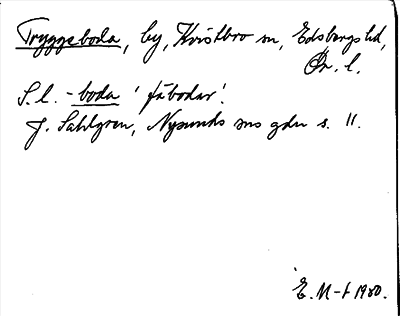 Tryggeboda, by, Kvistbro sn, Edsbergs hd,
Ör. l.
S. l. -boda 'fäbodar'.
J. Sahlgren, Nysunds sns gdn s. 11.
E. M-t 1980.